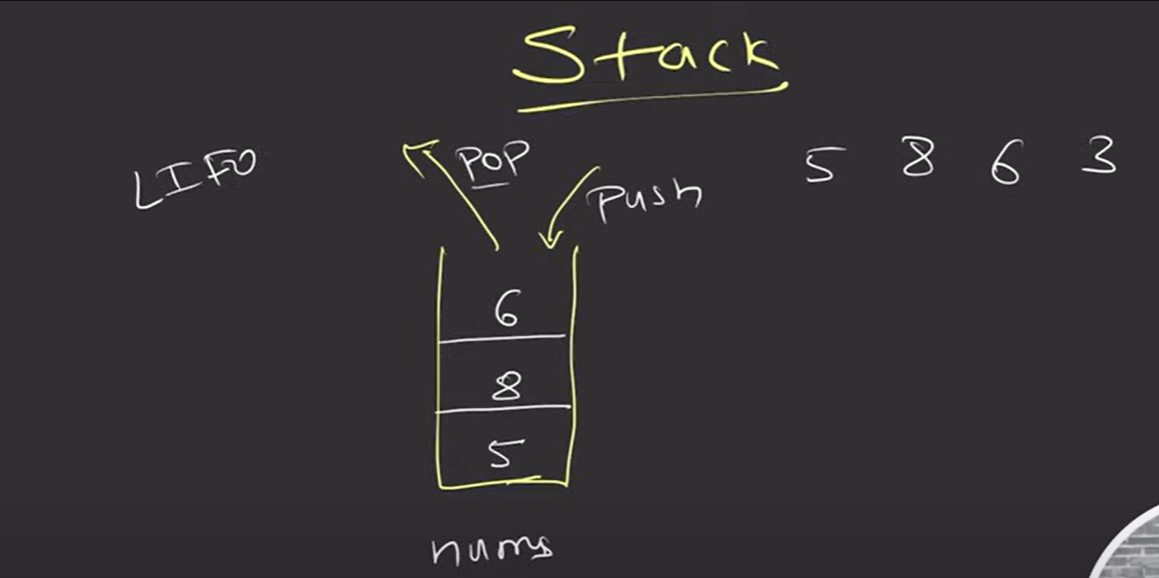 Stack
LIFO
POP
Push
5 8 6 3
6
8
5
nums